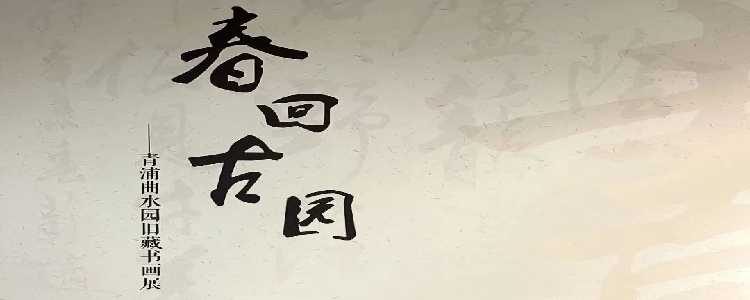 春回古园
——青浦曲水园旧藏书画展